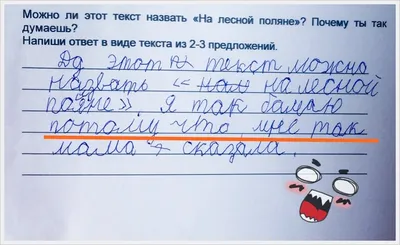 Можно ли этот текст назвать «На лесной поляне»? Почему ты так
думаешь?
Напиши ответ в виде текста из 2-3 предложений.
Да этот текст можно
назвать « на лесной
поляне» Я так думаю
потому что мне так
мама сказала